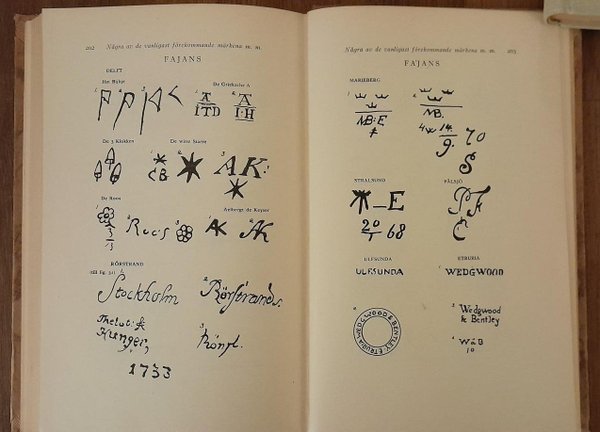 202 Några av de vanligast förekommande märkena m. m.
FAJANS
DELFT
Het Bijltje De Grieksche A
A A
ITD I:H
De 3 Klokken De witte Starre
CB AK:
De Roos Aelbregt de Keyser
3
13
Roos AK AK
RÖRSTRAND
Stockholm Rörstrands.
Thelot: &
Kunger,
Rörst.
1733
Några av de vanligast förekommande märkena m. m. 203
FAJANS
MARIEBERG
MB:E MB.
14
9. 70
S
STRALSUND PÅLSJÖ
E PF
20
1 68 C
ULFSUNDA ETRURIA
ULFSUNDA WEDGWOOD
WEDGWOOD & BENTLEY ETRURIA
Wedgwood
& Bentley
W&B
10